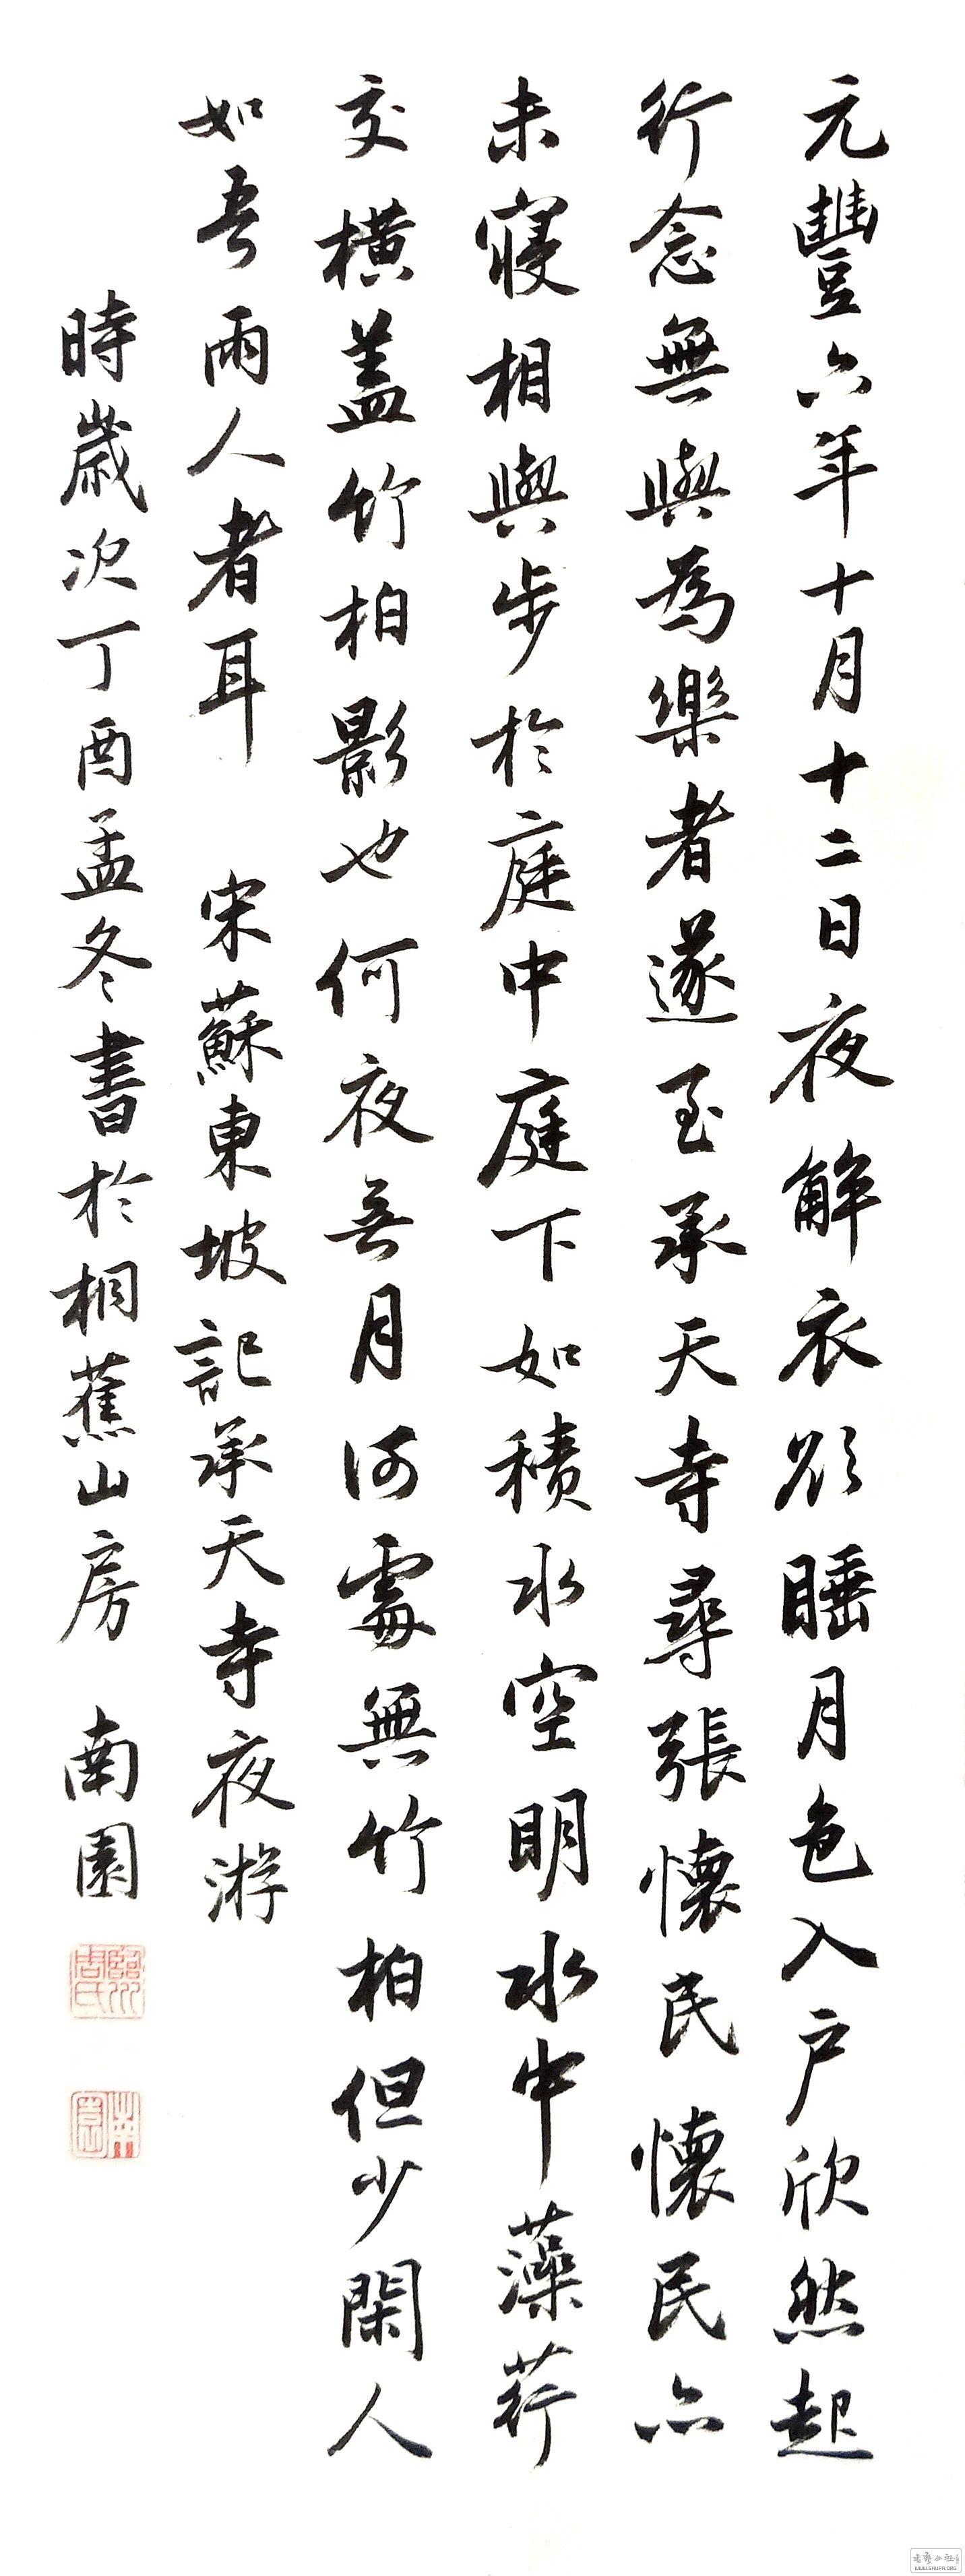 元豐六年十月十二日夜解衣欲睡月色入户欣然起
行念無與為樂者遂至承天寺尋張懷民懷民亦
未寢相與步於庭中庭下如積水空明水中藻荇
交橫盖竹柏影也何夜無月何處無竹柏但少閑人
如吾兩人者耳 宋蘇東坡記承天寺夜游
時歲次丁酉孟冬書於桐蕉山房 南園
南園
WWW.SHUFR.ORG